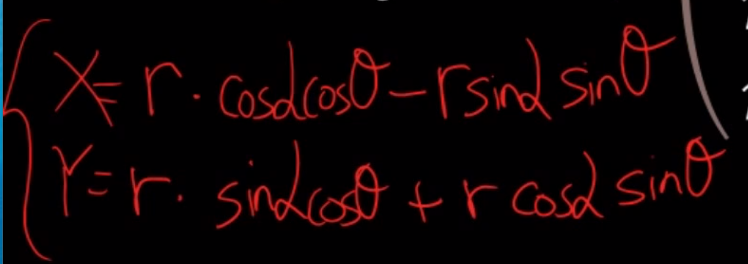 X = r · cosα cosθ - r sinα sinθ
Y = r · sinα cosθ + r cosα sinθ